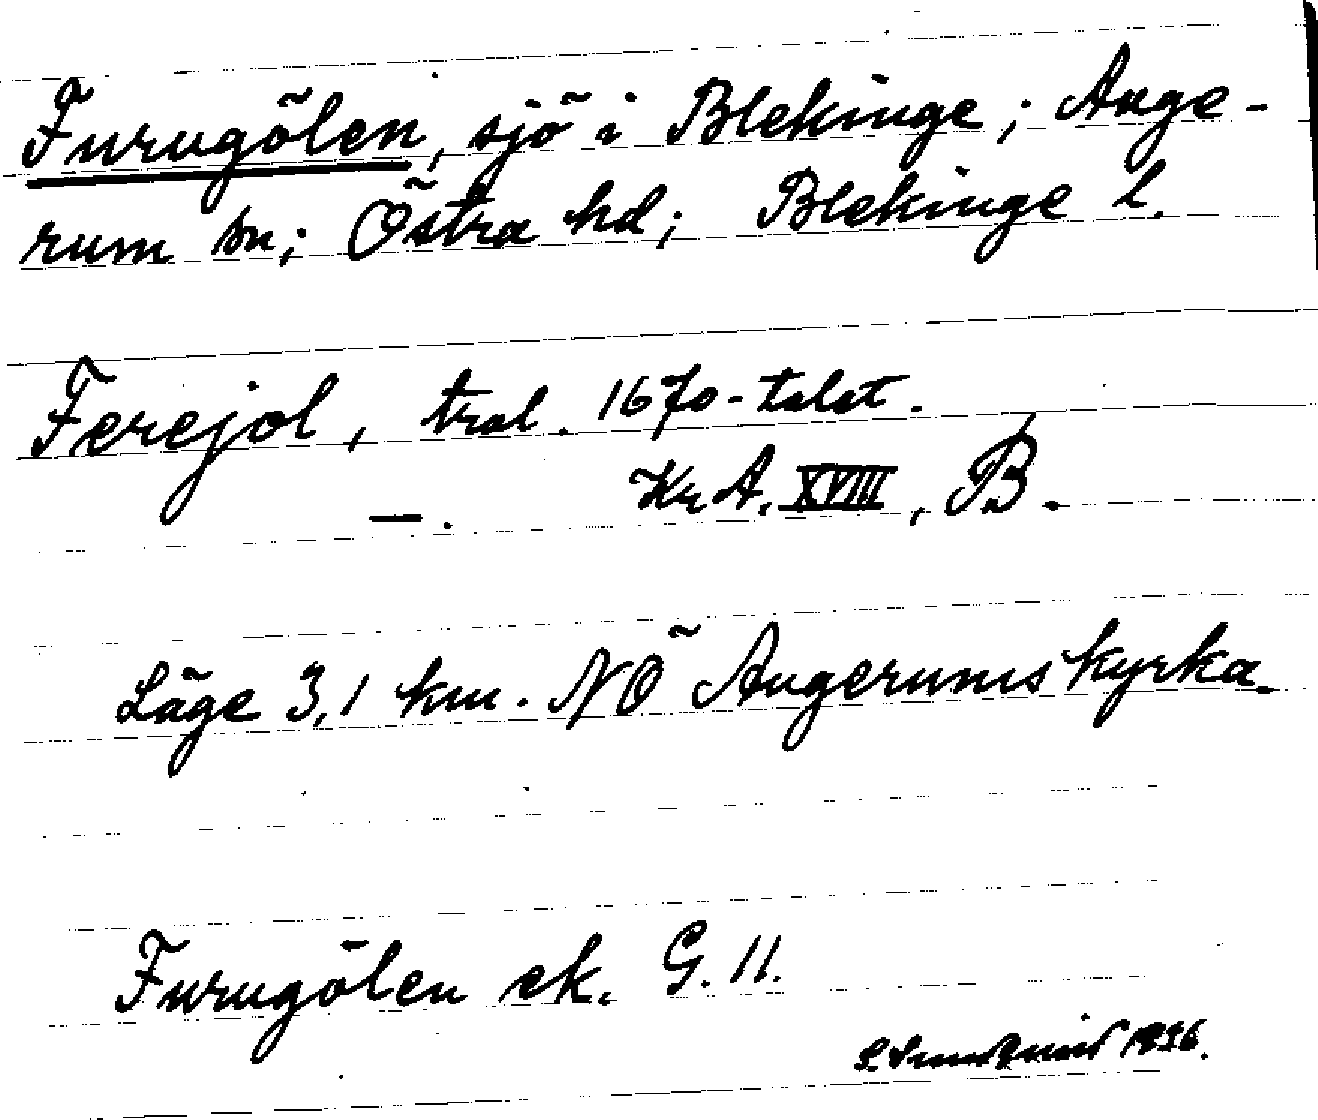 Furugölen, sjö i Blekinge; Auge-
rum sn; Östra hd; Blekinge l.
Ferejol, tral. 1670-talet.
—. Kr A. XVIII, B.
Läge 3,1 km. NÖ Augerums kyrka.
Furugölen ek. G. 11.
1936.